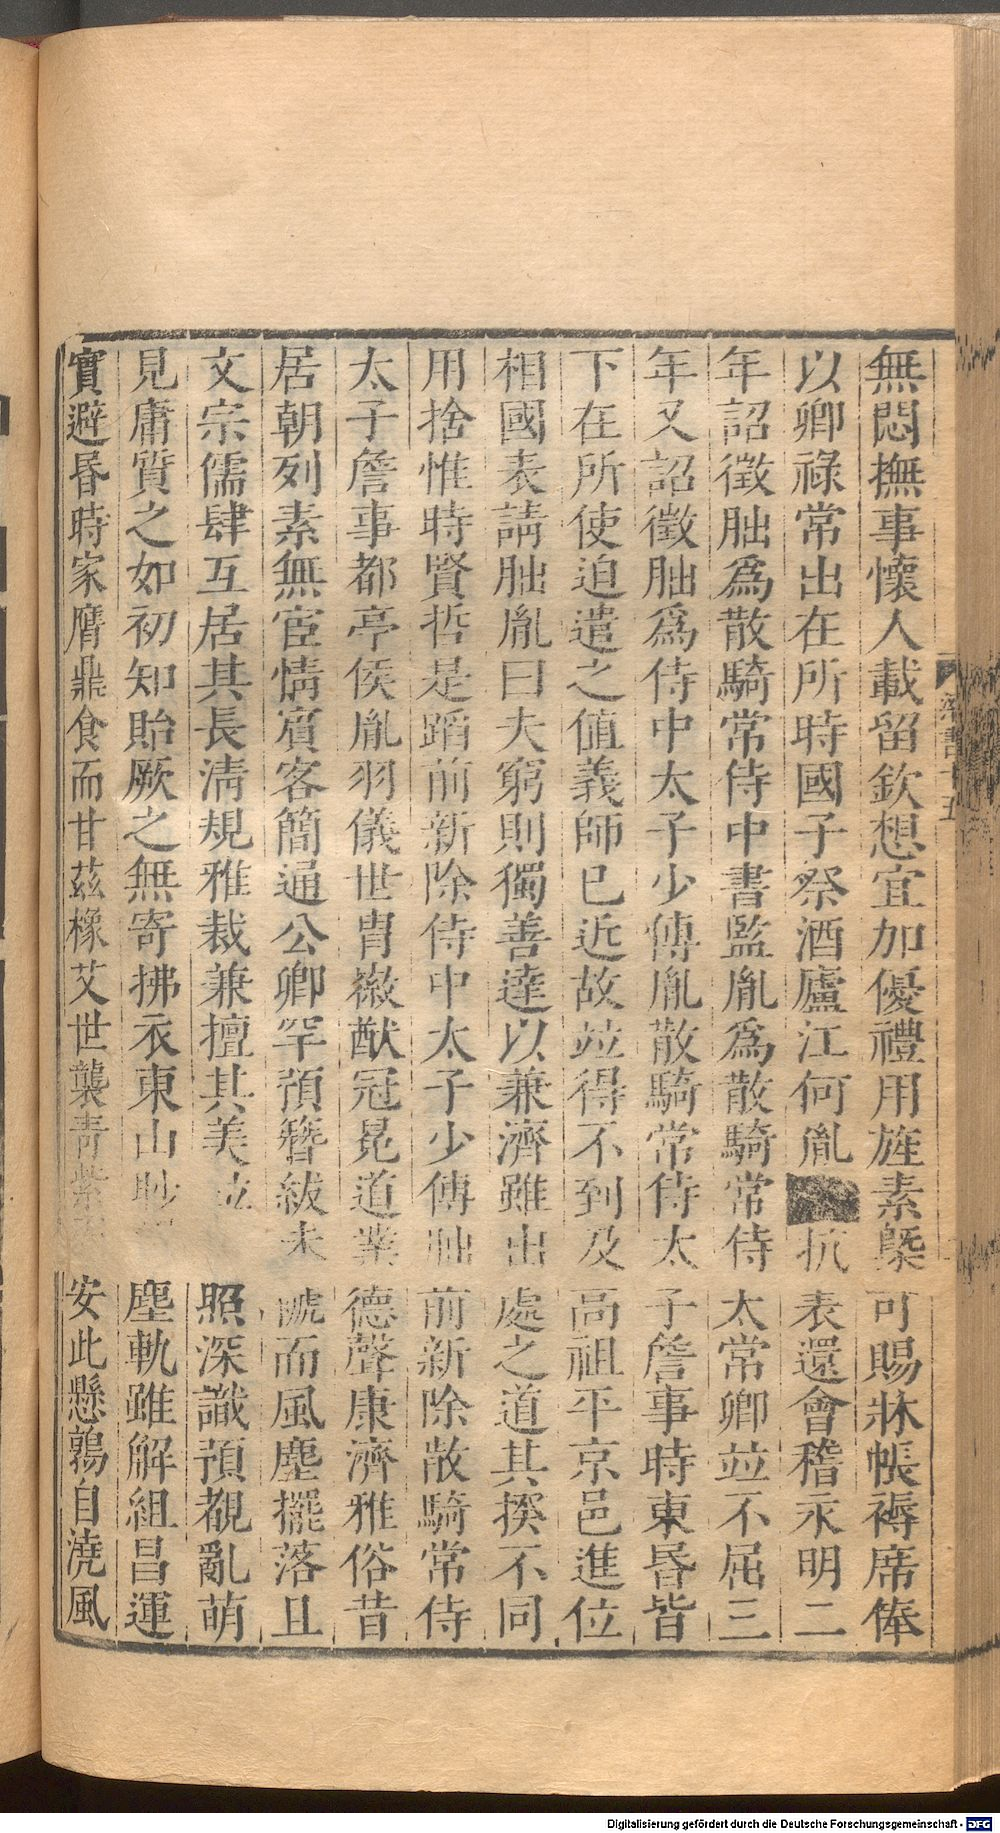 無悶撫事懷人載留欽想宜加優禮用旌素槩可賜牀帳褥席俸
以卿祿常出在所時國子祭酒廬江何胤抗表還會稽永明二
年詔徵朏爲散騎常侍中書監胤爲散騎常侍太常卿竝不屈三
年又詔徵朏爲侍中太子少傅胤散騎常侍太子詹事時東昏皆
下在所使迫遣之値義師已近故竝得不到及高祖平京邑進位
相國表請朏胤曰夫窮則獨善達以兼濟雖出處之道其揆不同
用捨惟時賢哲是蹈前新除侍中太子少傅朏前新除散騎常侍
太子詹事都亭侯胤羽儀世胄徽猷冠冕道業德聲康濟雅俗昔
居朝列素無宦情賓客簡通公卿罕預簪紱未褫而風塵擺落且
文宗儒肆互居其長淸規雅裁兼擅其美竝照深識預覩亂萌
見庸質之如初知貽厥之無寄拂衣東山眇塵軌雖解組昌運
實避昏時家膺鼎食而甘茲橡艾世襲靑紫安此懸鶉自澆風
梁書十五
Digitalisierung gefördert durch die Deutsche Forschungsgemeinschaft - DFG